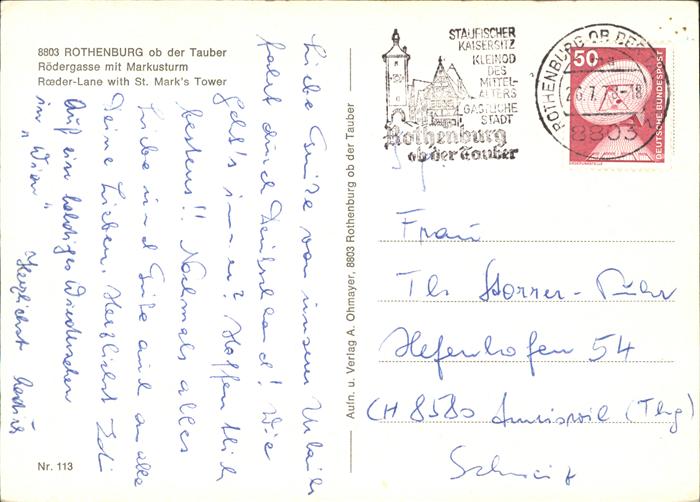 8803 ROTHENBURG ob der Tauber
Rödergasse mit Markusturm
Rœder-Lane with St. Mark's Tower
Liebe Grüße von unserer Urlaubs
fahrt durch Deutschland! Wie
geht's immer? Hoffentlich
bestens!! Nochmals alles
Liebe und Gute auch an alle
Deine Lieben. Herzlichst Edi
Auf ein baldiges Wiedersehen
in "Wien"
Herzlichst
Nr. 113
Aufn. u. Verlag A. Ohmayer, 8803 Rothenburg ob der Tauber
STAUFISCHER
KAISERSITZ
KLEINOD
DES
MITTEL-
ALTERS
GASTLICHE
STADT
Rothenburg
ob der Tauber
ROTHENBURG OB DER
8803
50
DEUTSCHE BUNDESPOST
Frau
Storrer-
Hefenhofen 54
CH 8580 Amriswil (Thg)
Schweiz